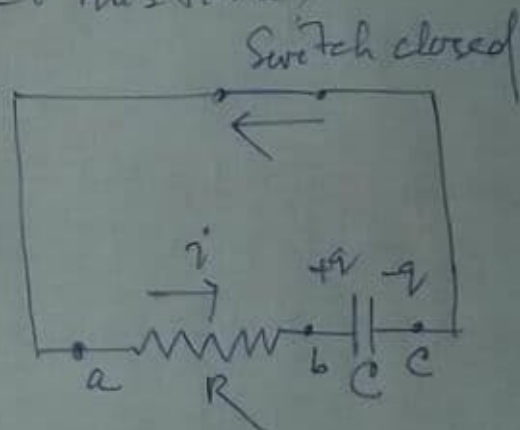 Switch closed
i
+q -q
a
b
C
c
R